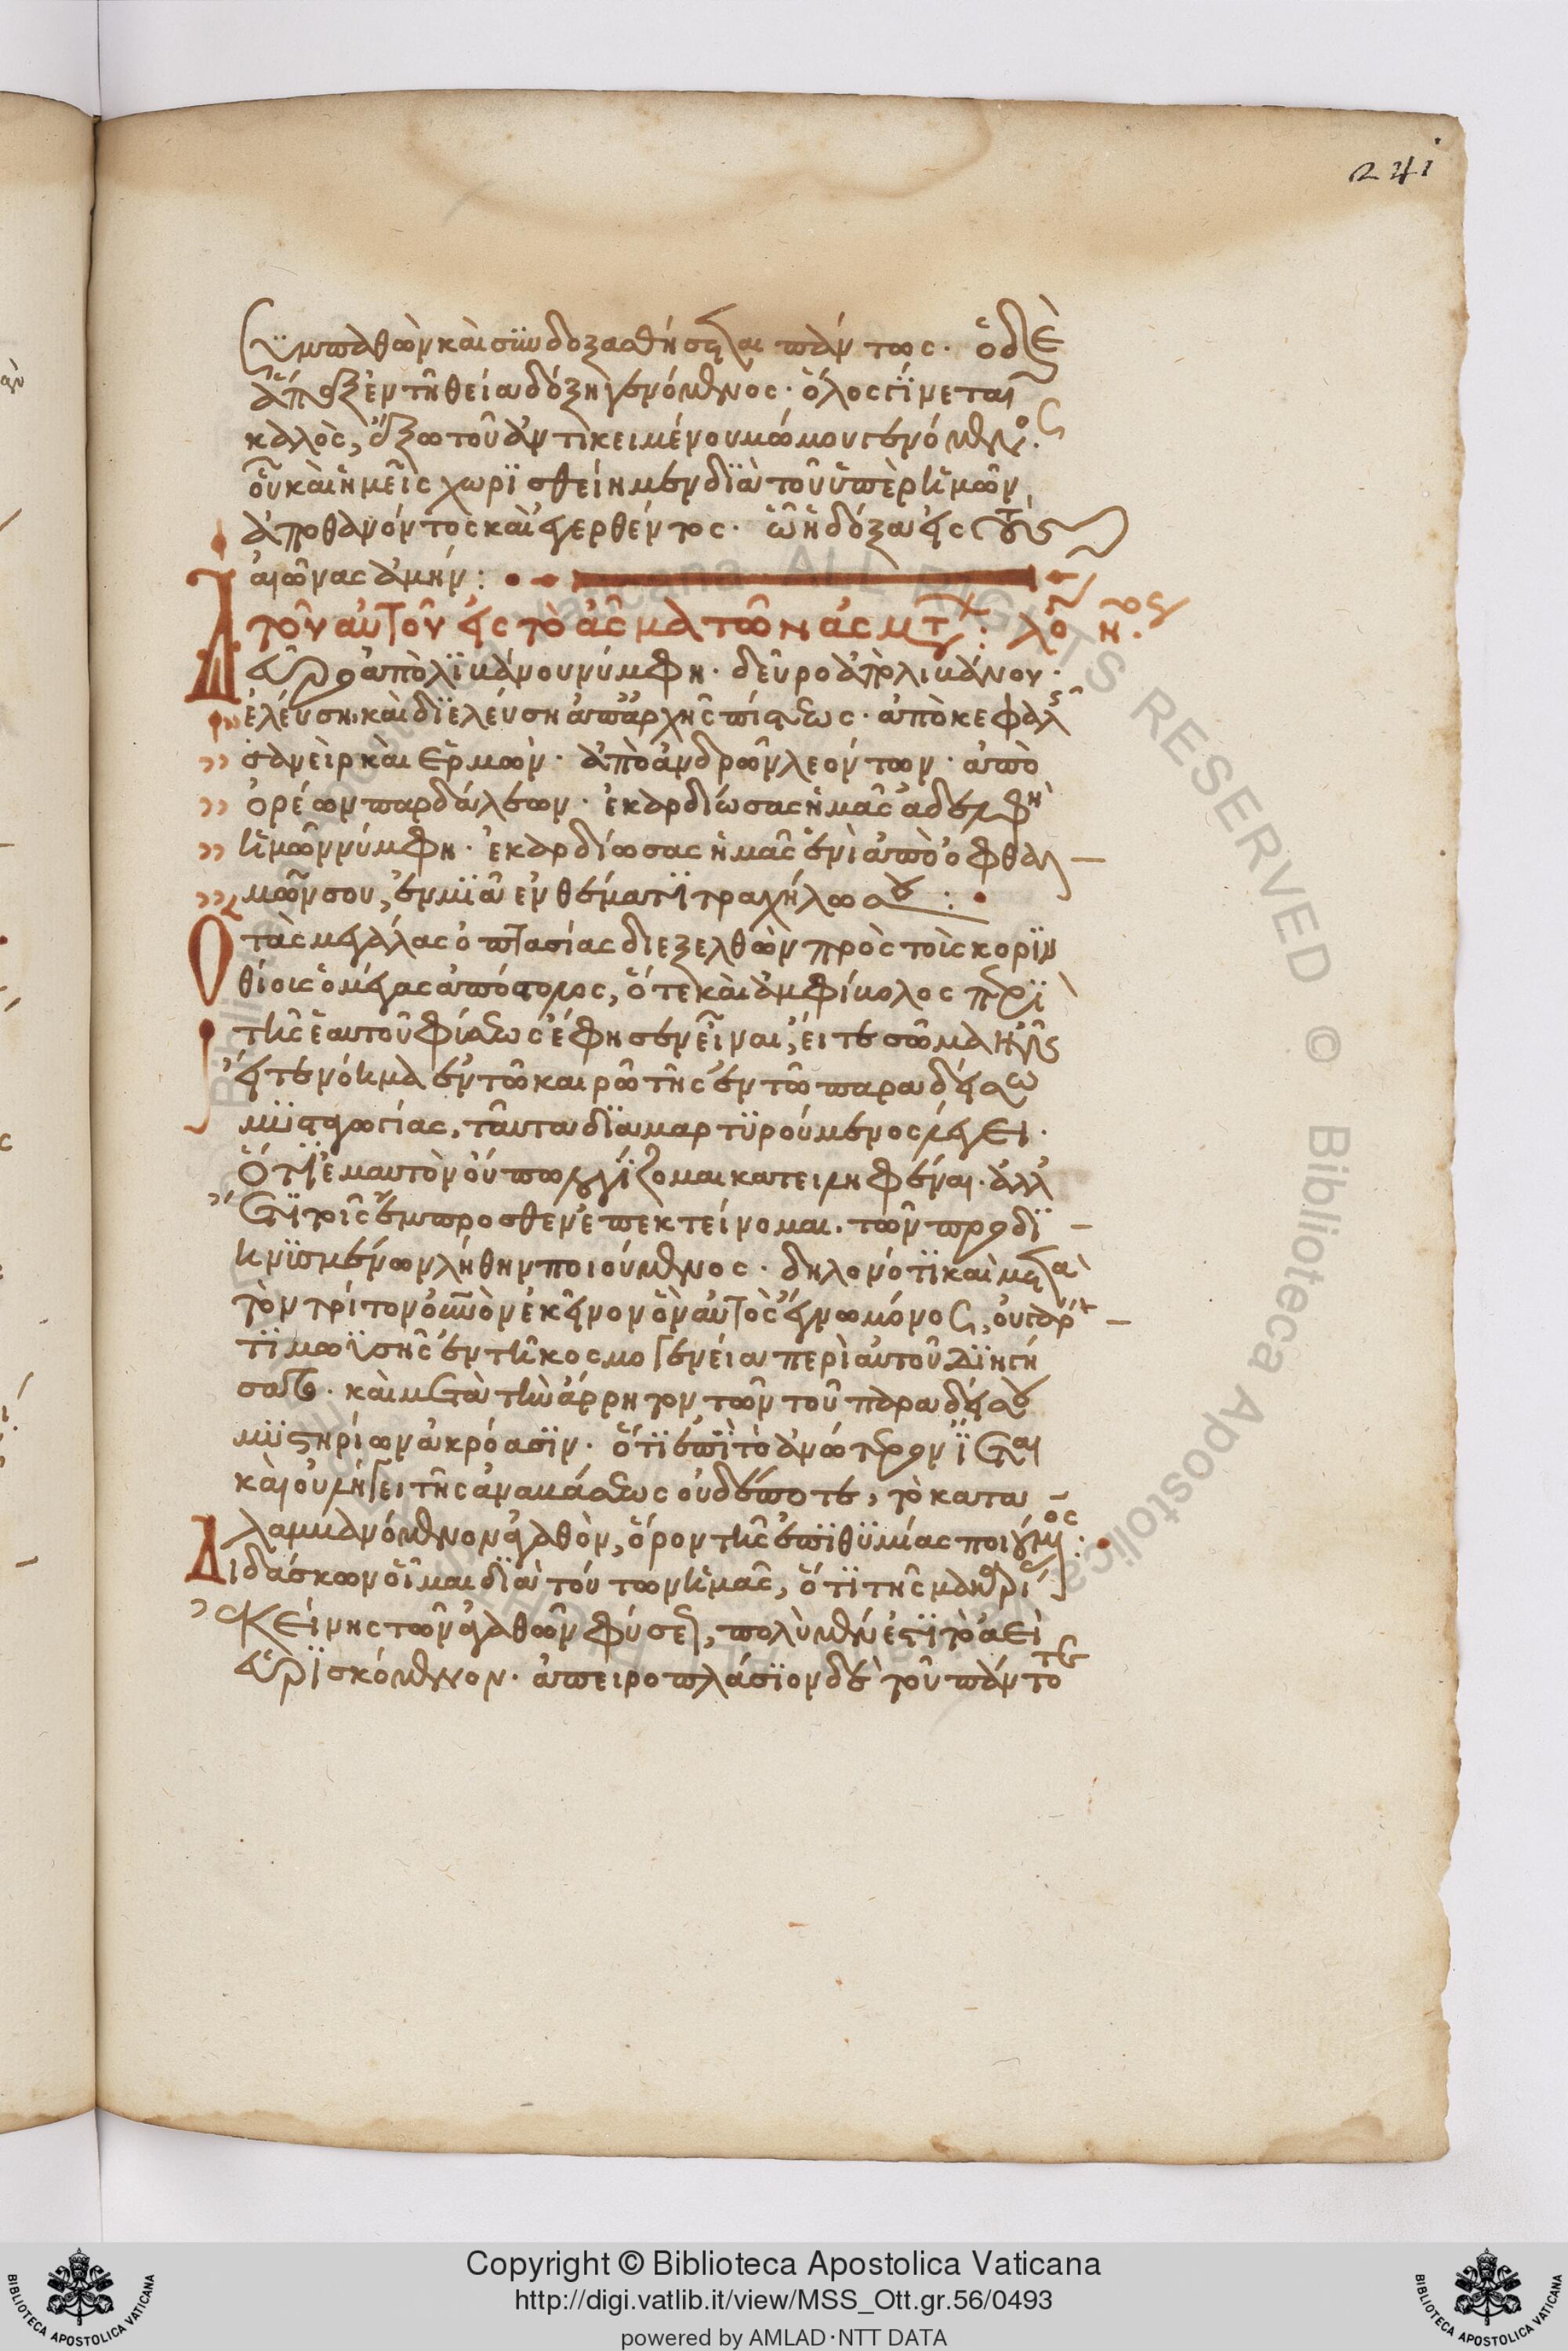 241
συμπαθὼν καὶ συνδοξασθήσεται πάντως· ὁ δὲ
ἅπαξ ἐν τῆ θεία δόξη γενόμενος· ὅλος γίνεται
καλὸς, ἔξω τοῦ ἀντικειμένου μώμου γενόμενος·
οὗ καὶ ἡμεῖς χωρϊσθείημεν διὰ τοῦ ὑπὲρ ἡμῶν
ἀποθανόντος καὶ ἐγερθέντος· ὧ ἡ δόξα εἰς τοὺς
αἰῶνας ἀμήν:
τοῦ αὐτοῦ εἰς τὸ ἆσμα τῶν ἀσμάτων: λόγος η·
Δεῦρο ἀπὸ λϊβάνου νύμφη· δεῦρο ἀπὸ λιβάνου·
ἐλεύση καὶ διελεύση ἀπ' ἀρχῆς πίστεως· ἀπὸ κεφαλῆς
σανεὶρ καὶ ἑρμών· ἀπὸ ἀνδρῶν λεόντων· ἀπὸ
ὀρέων παρδάλεων· ἐκαρδίωσας ἡμᾶς ἀδελφὴ
ἡμῶν νύμφη· ἐκαρδίωσας ἡμᾶς ἑνὶ ἀπὸ ὀφθαλ
μῶν σου, ἐν μϊᾶ ἐνθέματϊ τραχήλω σου:
Ὁ τὰς μεγάλας ὀπτασίας διεξελθὼν πρὸς τοῖς κορϊν
θίοις ὁ μέγας ἀπόστολος, ὅτε καὶ ἀμφίβολος περὶ
τῆς ἑαυτοῦ φύσεως ἔφησεν εἶναι, εἴτε σῶμα ἦν
εἴτε νόημα ἐν τῶ καιρῶ τῆς ἐν τῶ παραδείσω
μϋσταγωγίας, ταῦτα διαμαρτϋρούμενος λέγει·
Ὅτϊ ἐμαυτὸν οὔπω λογίζομαι κατειληφέναι· ἀλλ'
ἔτϊ τοῖς ἔμπροσθεν ἐπεκτείνομαι· τῶν προδϊ
ηνϋσμένων λήθην ποιούμενος· δηλονότϊ καὶ μετὰ
τὸν τρίτον οὐρανὸν ἐκεῖνον ὃν αὐτὸς ἔγνω μόνος, οὐ γάρ
τϊ μωϋσῆς ἐν τῆ κοσμογενεία περὶ αὐτοῦ διηγή
σατο· καὶ μετὰ τὴν ἄρρητον τῶν τοῦ παραδείσου
μϋστηρίων ἀκρόασϊν· ὅτϊ ἐπὶ τὸ ἀνώτερον ἵεται
καὶ οὐ λήγει τῆς ἀναβάσεως οὐδέποτε, τὸ κατα
λαμβανόμενον ἀγαθὸν, ὅρον τῆς ἐπϊθϋμίας ποιούμενος:
Διδάσκων οἶμαι διὰ τούτων ἡμᾶς, ὅτϊ τῆς μακαρίας
ἐκείνης τῶν ἀγαθῶν φύσεως, πολὺ μέν ἐστϊ τὸ ἀεὶ
εὑρϊσκόμενον· ἀπειροπλάσϊον δὲ τοῦ πάντοτε
Copyright © Biblioteca Apostolica Vaticana
http://digi.vatlib.it/view/MSS_Ott.gr.56/0493
powered by AMLAD·NTT DATA